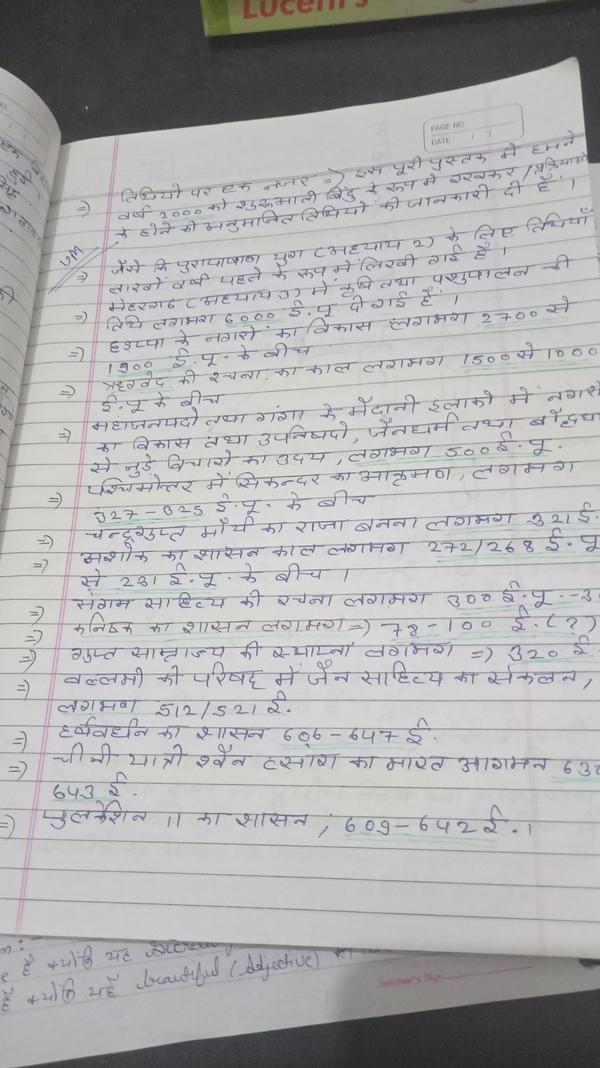 Lucent's
PAGE NO.
DATE
⇒ तिथियों पर एक नजर ⇒ इस पूरी पुस्तक में हमने
वर्ष 2000 को शुरुआती बिंदु के रूप में रखकर / प्रक्रियाओं
के होने की अनुमानित तिथियों की जानकारी दी है ।
⇒ जैसे कि पुरापाषाण युग (अध्याय 2) के लिए तिथियाँ
लाखों वर्षों पहले के रूप में लिखी गई हैं ।
⇒ मेहरगढ़ (अध्याय 3) में कृषि तथा पशुपालन की
तिथि लगभग 6000 ई.पू दी गई है ।
⇒ हड़प्पा के नगरों का विकास लगभग 2700 से
1900 ई.पू. के बीच
⇒ ऋग्वेद की रचना का काल लगभग 1500 से 1000
ई.पू के बीच
⇒ महाजनपदो तथा गंगा के मैदानी इलाको में नगरो
का विकास तथा उपनिषदो, जैनधर्म तथा बौद्धध
से जुड़े विचारो का उदय, लगभग 500 ई.पू.
⇒ पश्चिमोत्तर में सिकन्दर का आक्रमण, लगभग
327-325 ई.पू. के बीच
⇒ चन्द्रगुप्त मौर्य का राजा बनना लगभग 321 ई.
⇒ अशोक का शासन काल लगभग 272/268 ई.पू
से 231 ई.पू. के बीच ।
⇒ संगम साहित्य की रचना लगभग 300 ई.पू.-3
⇒ कनिष्क का शासन लगभग ⇒ 78-100 ई.(?)
⇒ गुप्त साम्राज्य की स्थापना लगभग ⇒ 320 ई
⇒ वल्लभी की परिषद् में जैन साहित्य का संकलन,
लगभग 512/521 ई.
⇒ हर्षवर्धन का शासन 606-647 ई.
⇒ चीनी यात्री श्वैन त्सांग का भारत आगमन 63
643 ई.
⇒ पुलकेशिन ।। का शासन ; 609-642 ई.।
है क्योंकि यह
है क्योंकि यहँ beautiful (Adjective)
Teacher's Sign